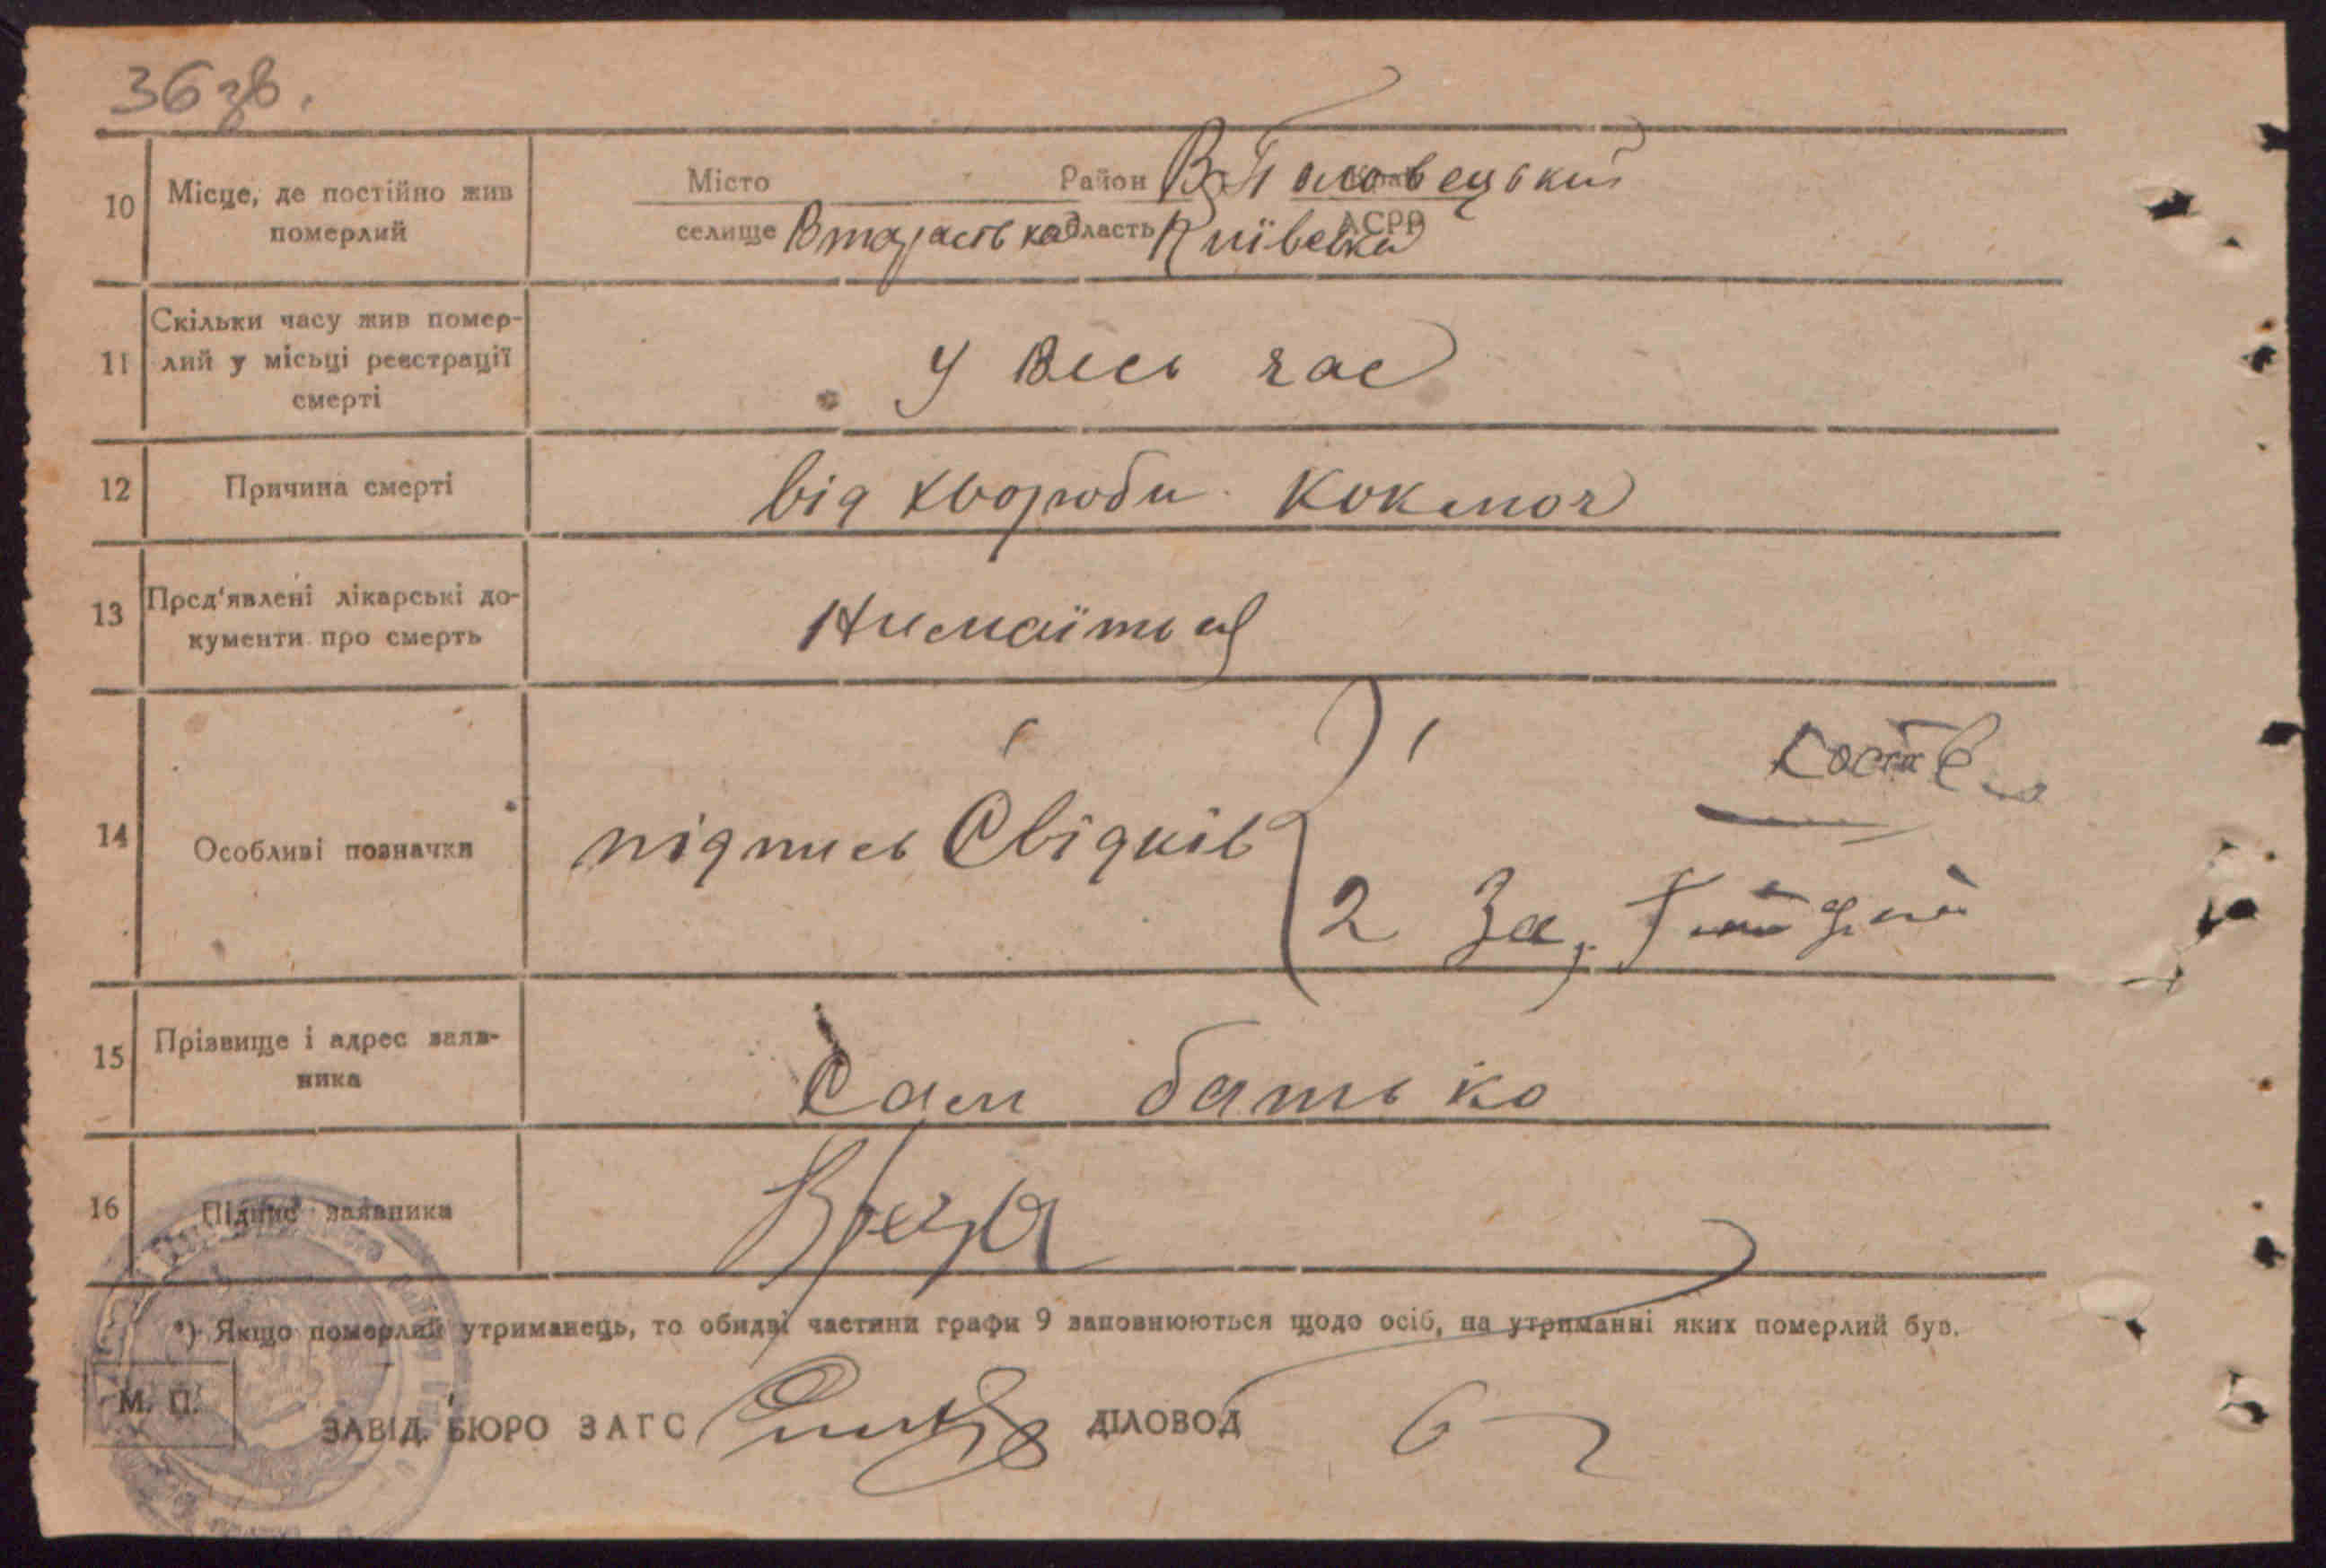 36 зв.
10 Місце, де постійно жив померлий
Місто Район В Половецький
селище область Київська АСРР
11 Скільки часу жив померлий у місьці реєстрації смерті
У весь час
12 Причина смерті
від хвороби коключ
13 Пред'явлені лікарські документи про смерть
Нимаїться
14 Особливі позначки
підпись Свідків
2
15 Прізвище і адрес заявника
Сам батько
16 Підпис заявника
*) Якщо померлий утриманець, то обидві частини графи 9 заповнюються щодо осіб, на утриманні яких померлий був.
М. П.
ЗАВІД. БЮРО ЗАГС ДІЛОВОД